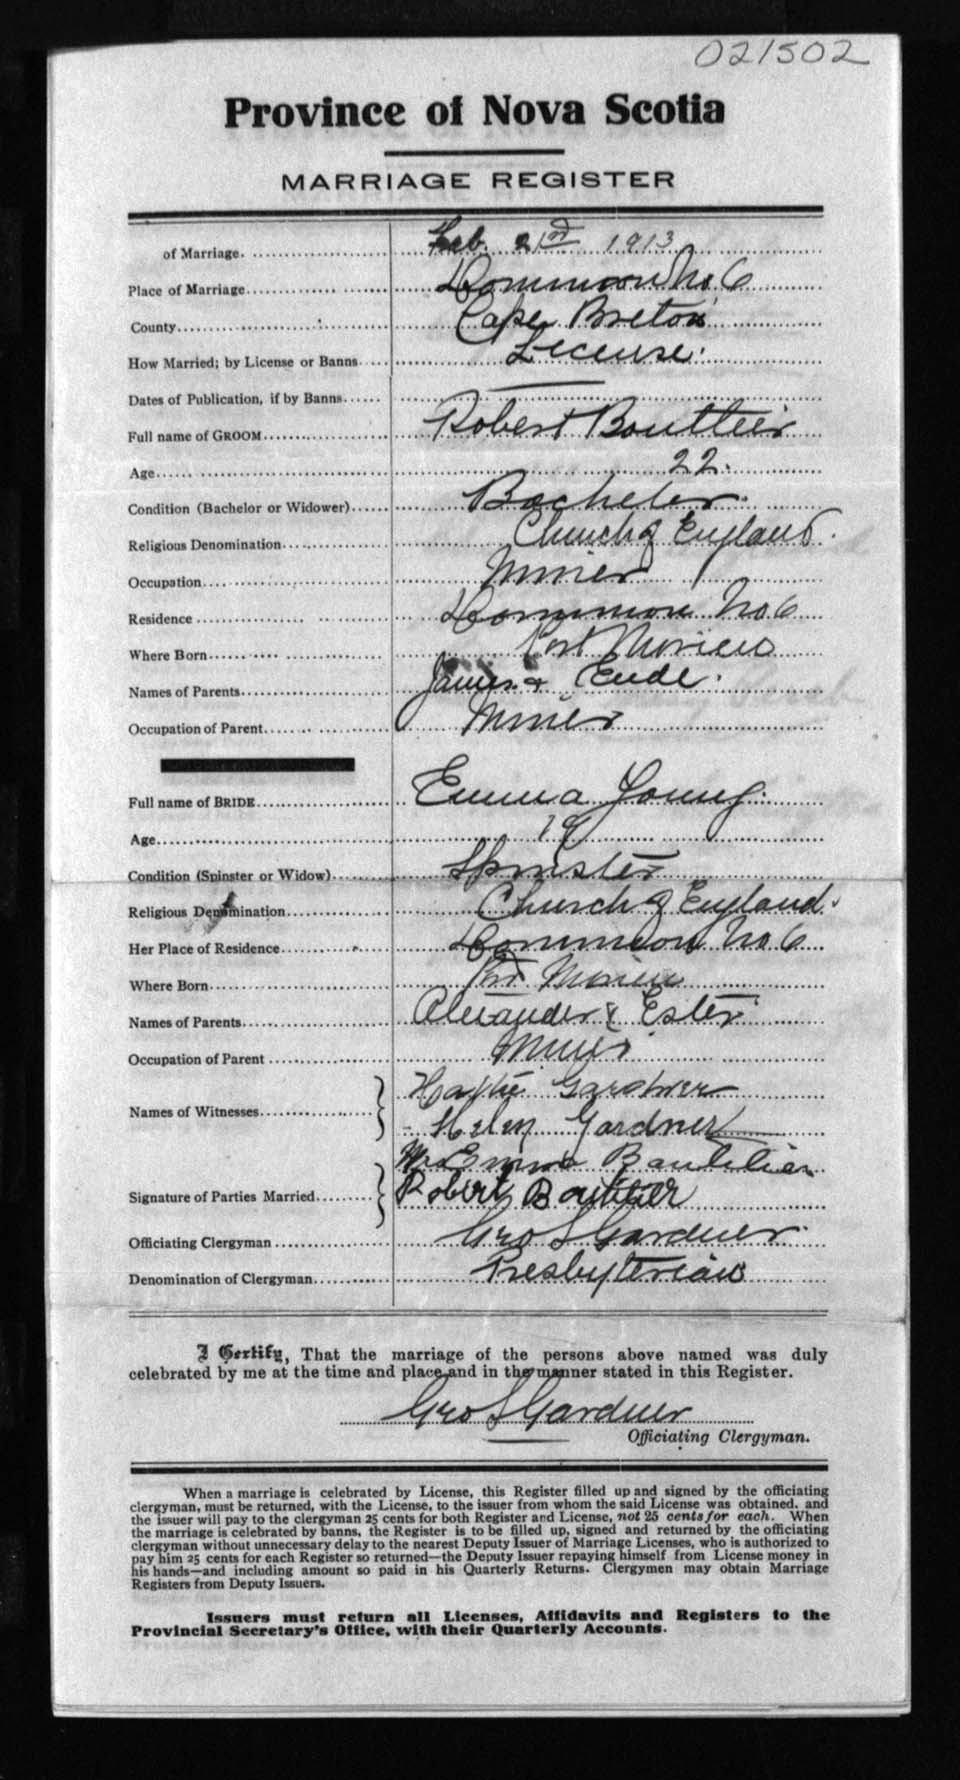 021502
Province of Nova Scotia
MARRIAGE REGISTER
of Marriage. Feb. 21st 1913
Place of Marriage Dominion No 6
County Cape Breton
How Married; by License or Banns License.
Dates of Publication, if by Banns
Full name of GROOM Robert Bouttier
Age 22.
Condition (Bachelor or Widower) Bachelor.
Religious Denomination Church of England.
Occupation Miner
Residence Dominion No 6
Where Born Port Morien
Names of Parents James &
Occupation of Parent Miner
Full name of BRIDE Emma Young.
Age 19
Condition (Spinster or Widow) Spinster
Religious Denomination Church of England.
Her Place of Residence Dominion No 6
Where Born Port Morien
Names of Parents Alexander & Ester
Occupation of Parent Miner
Names of Witnesses Hattie Gardner
Helen Gardner
Mrs Emma Boutilier
Signature of Parties Married Robert Boutilier
Officiating Clergyman Geo S Gardner.
Denomination of Clergyman Presbyterian
I Certify, That the marriage of the persons above named was duly
celebrated by me at the time and place and in the manner stated in this Register.
Geo S Gardner
Officiating Clergyman.
When a marriage is celebrated by License, this Register filled up and signed by the officiating
clergyman, must be returned, with the License, to the issuer from whom the said License was obtained. and
the issuer will pay to the clergyman 25 cents for both Register and License, not 25 cents for each. When
the marriage is celebrated by banns, the Register is to be filled up, signed and returned by the officiating
clergyman without unnecessary delay to the nearest Deputy Issuer of Marriage Licenses, who is authorized to
pay him 25 cents for each Register so returned—the Deputy Issuer repaying himself from License money in
his hands—and including amount so paid in his Quarterly Returns. Clergymen may obtain Marriage
Registers from Deputy Issuers.
Issuers must return all Licenses, Affidavits and Registers to the
Provincial Secretary's Office, with their Quarterly Accounts.